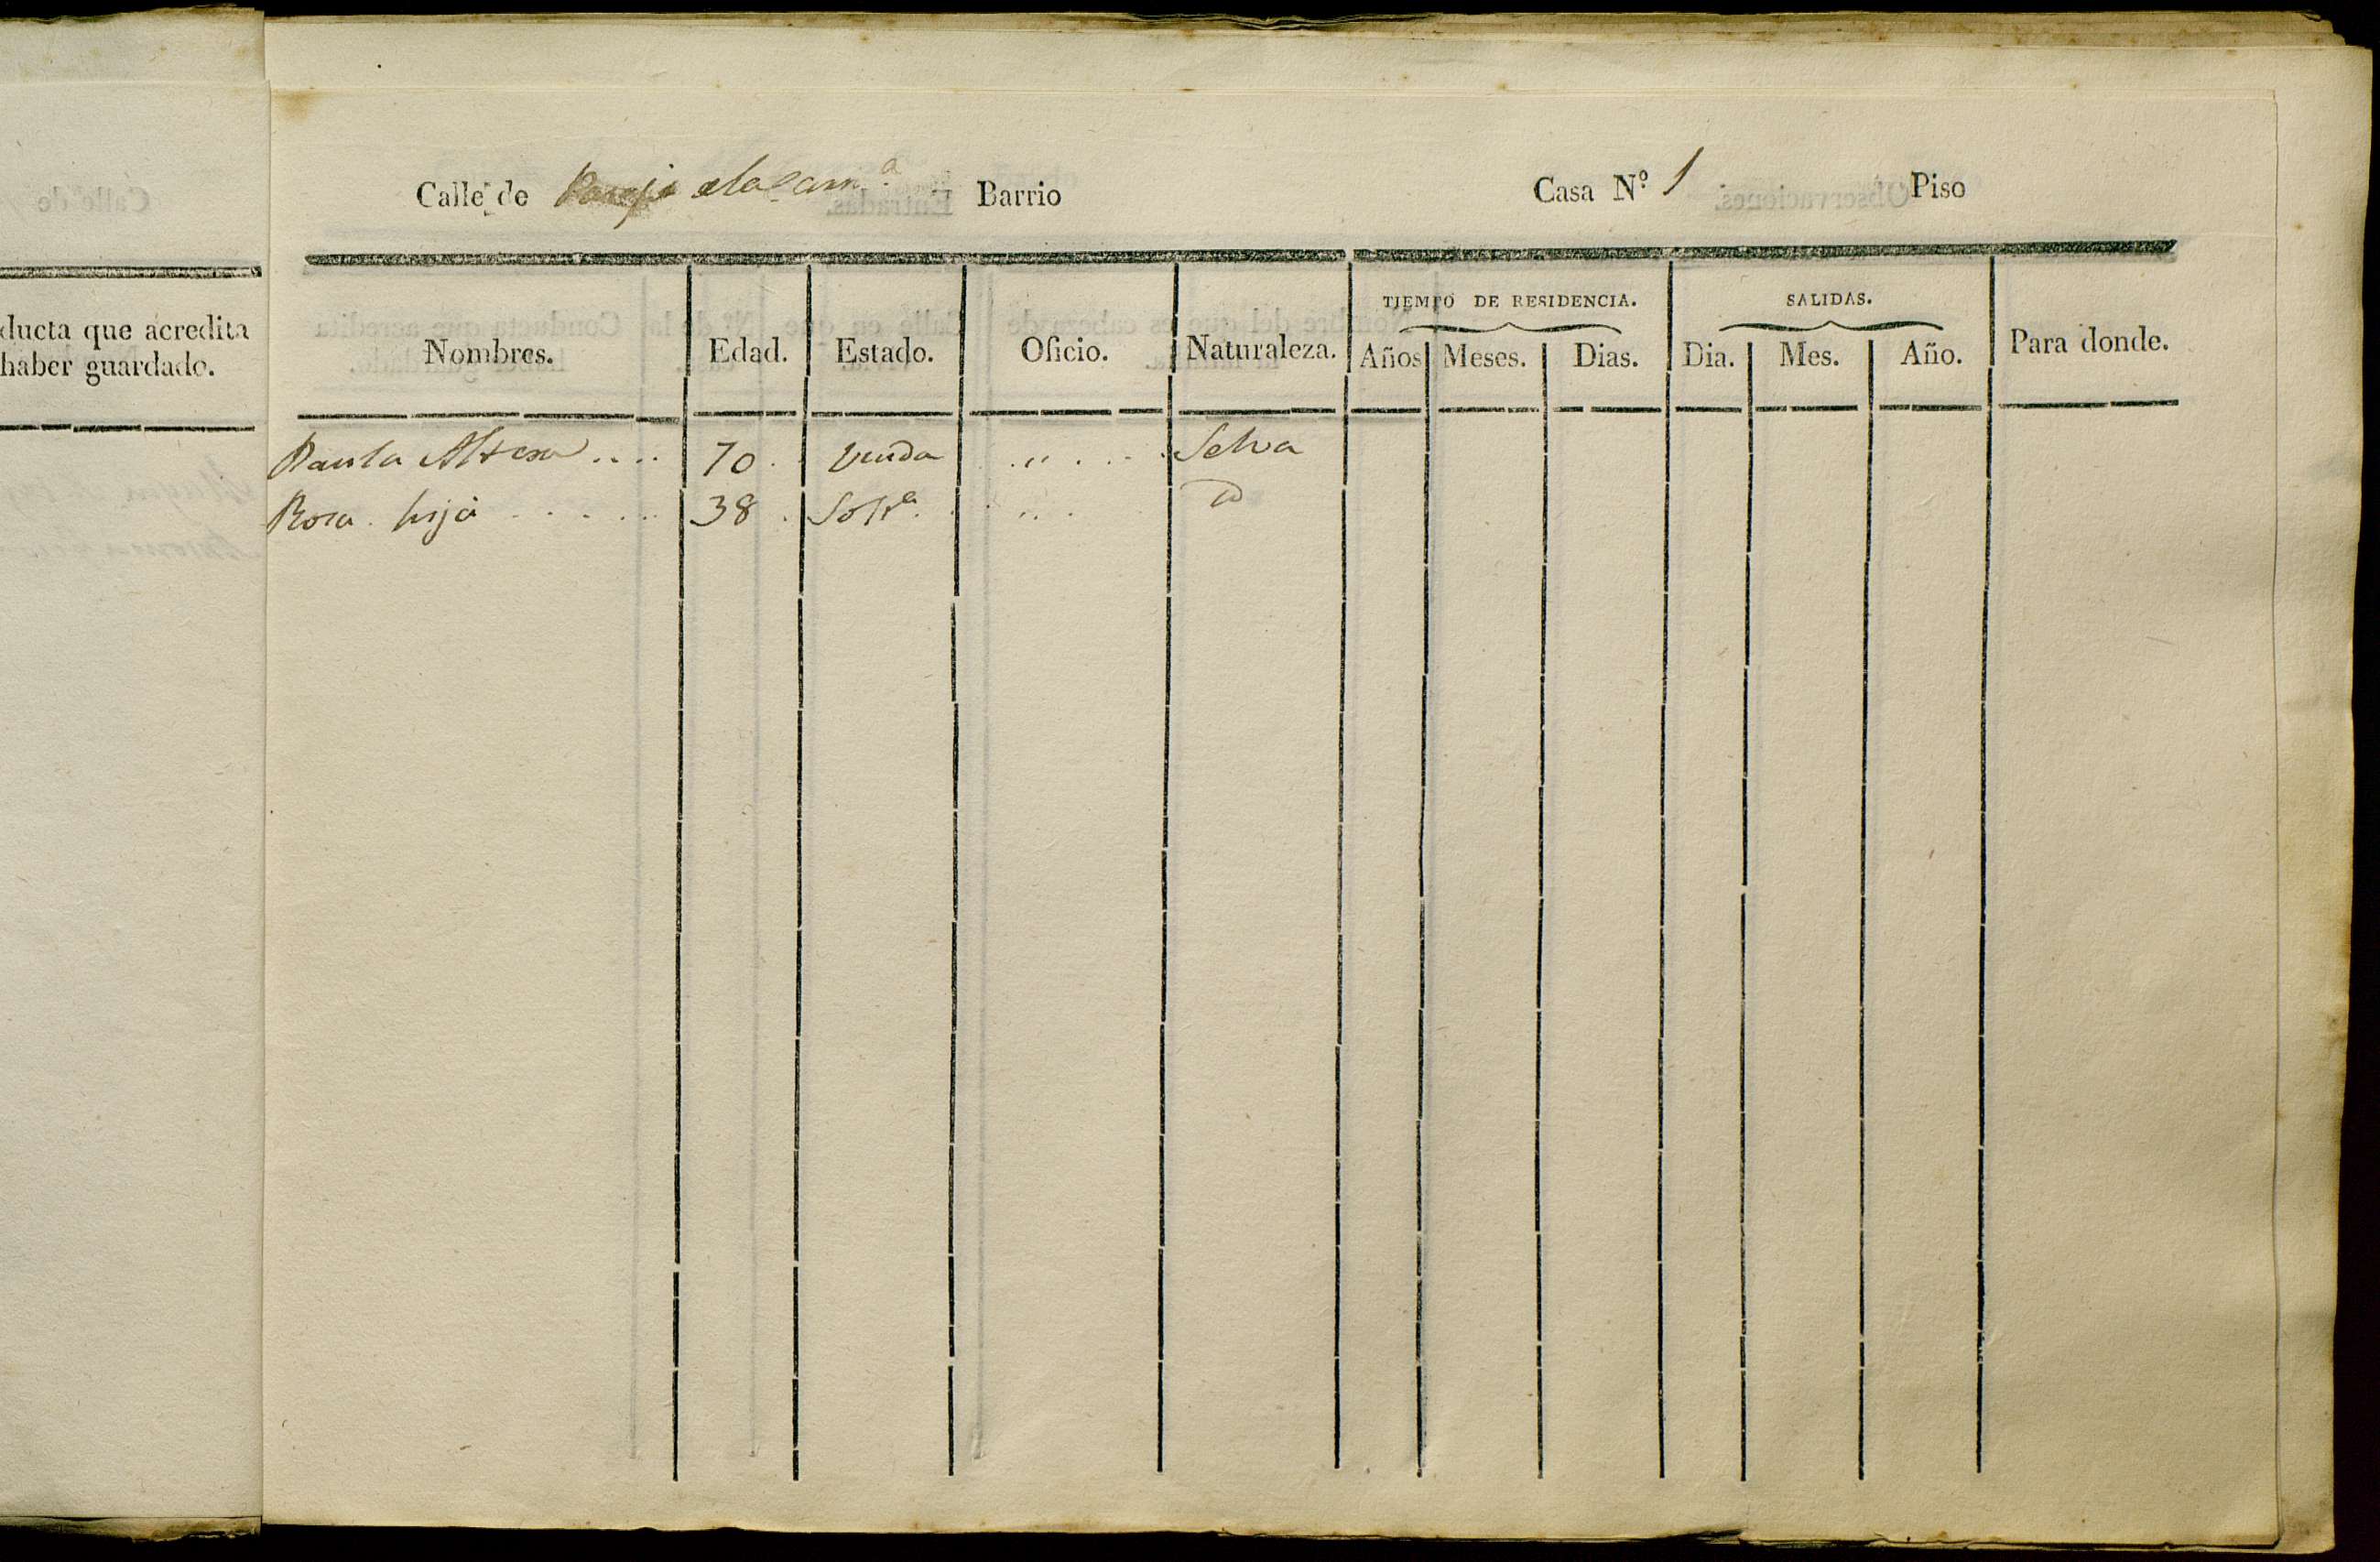 Calle de
ducta que acredita
haber guardado.
Calle de Barrio Casa N.º 1 Piso
TIEMPO DE RESIDENCIA. SALIDAS.
Nombres. Edad. Estado. Oficio. Naturaleza. Años Meses. Dias. Dia. Mes. Año. Para donde.
Paula .... 70 . Viuda . „ . . . . Selva
Rosa . hija . . . . . 38 . Solt.ª . . . . . . D